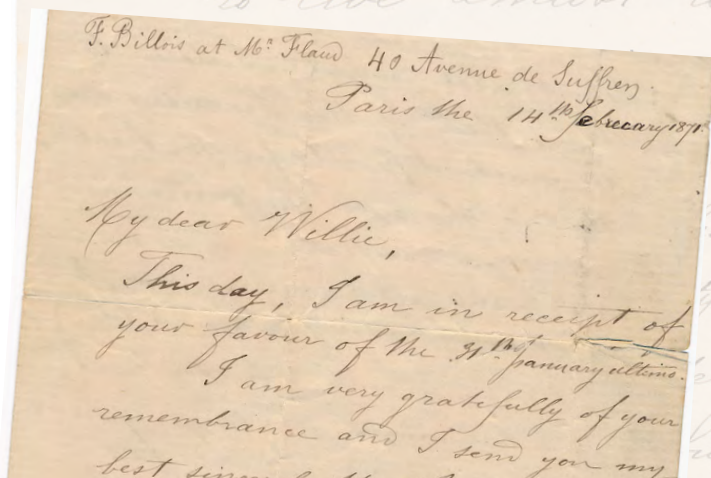 F. Billois at Mr. Flaud 40 Avenue de Suffren
Paris the 14th february 1871.
My dear Willie,
This day, I am in receipt of
your favour of the 31th January ultimo.
I am very gratefully of your
remembrance and I send you my
best